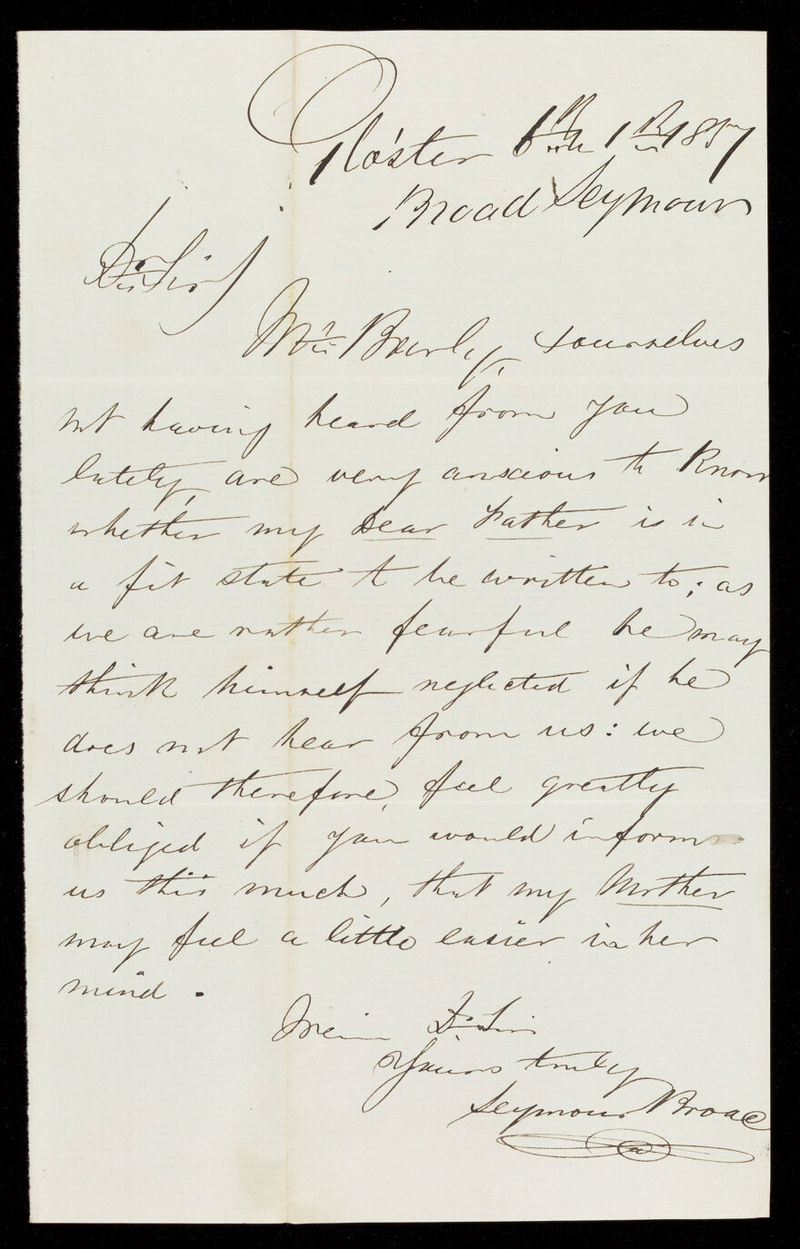 Gloster 6th 1857
Broad Seymour
Dr Sir
Mrs Bearly, & ourselves
not having heard from you
lately, are very anxious to Know
whether my Dear Father is in
a fit state to be written to; as
we are rather fearful he may
think himself neglected if he
does not hear from us: we
should therefore, feel greatly
obliged if you would inform
us this much, that my Mother
may feel a little easier in her
mind.
Dr Sir
Yours truly
Seymour Broad